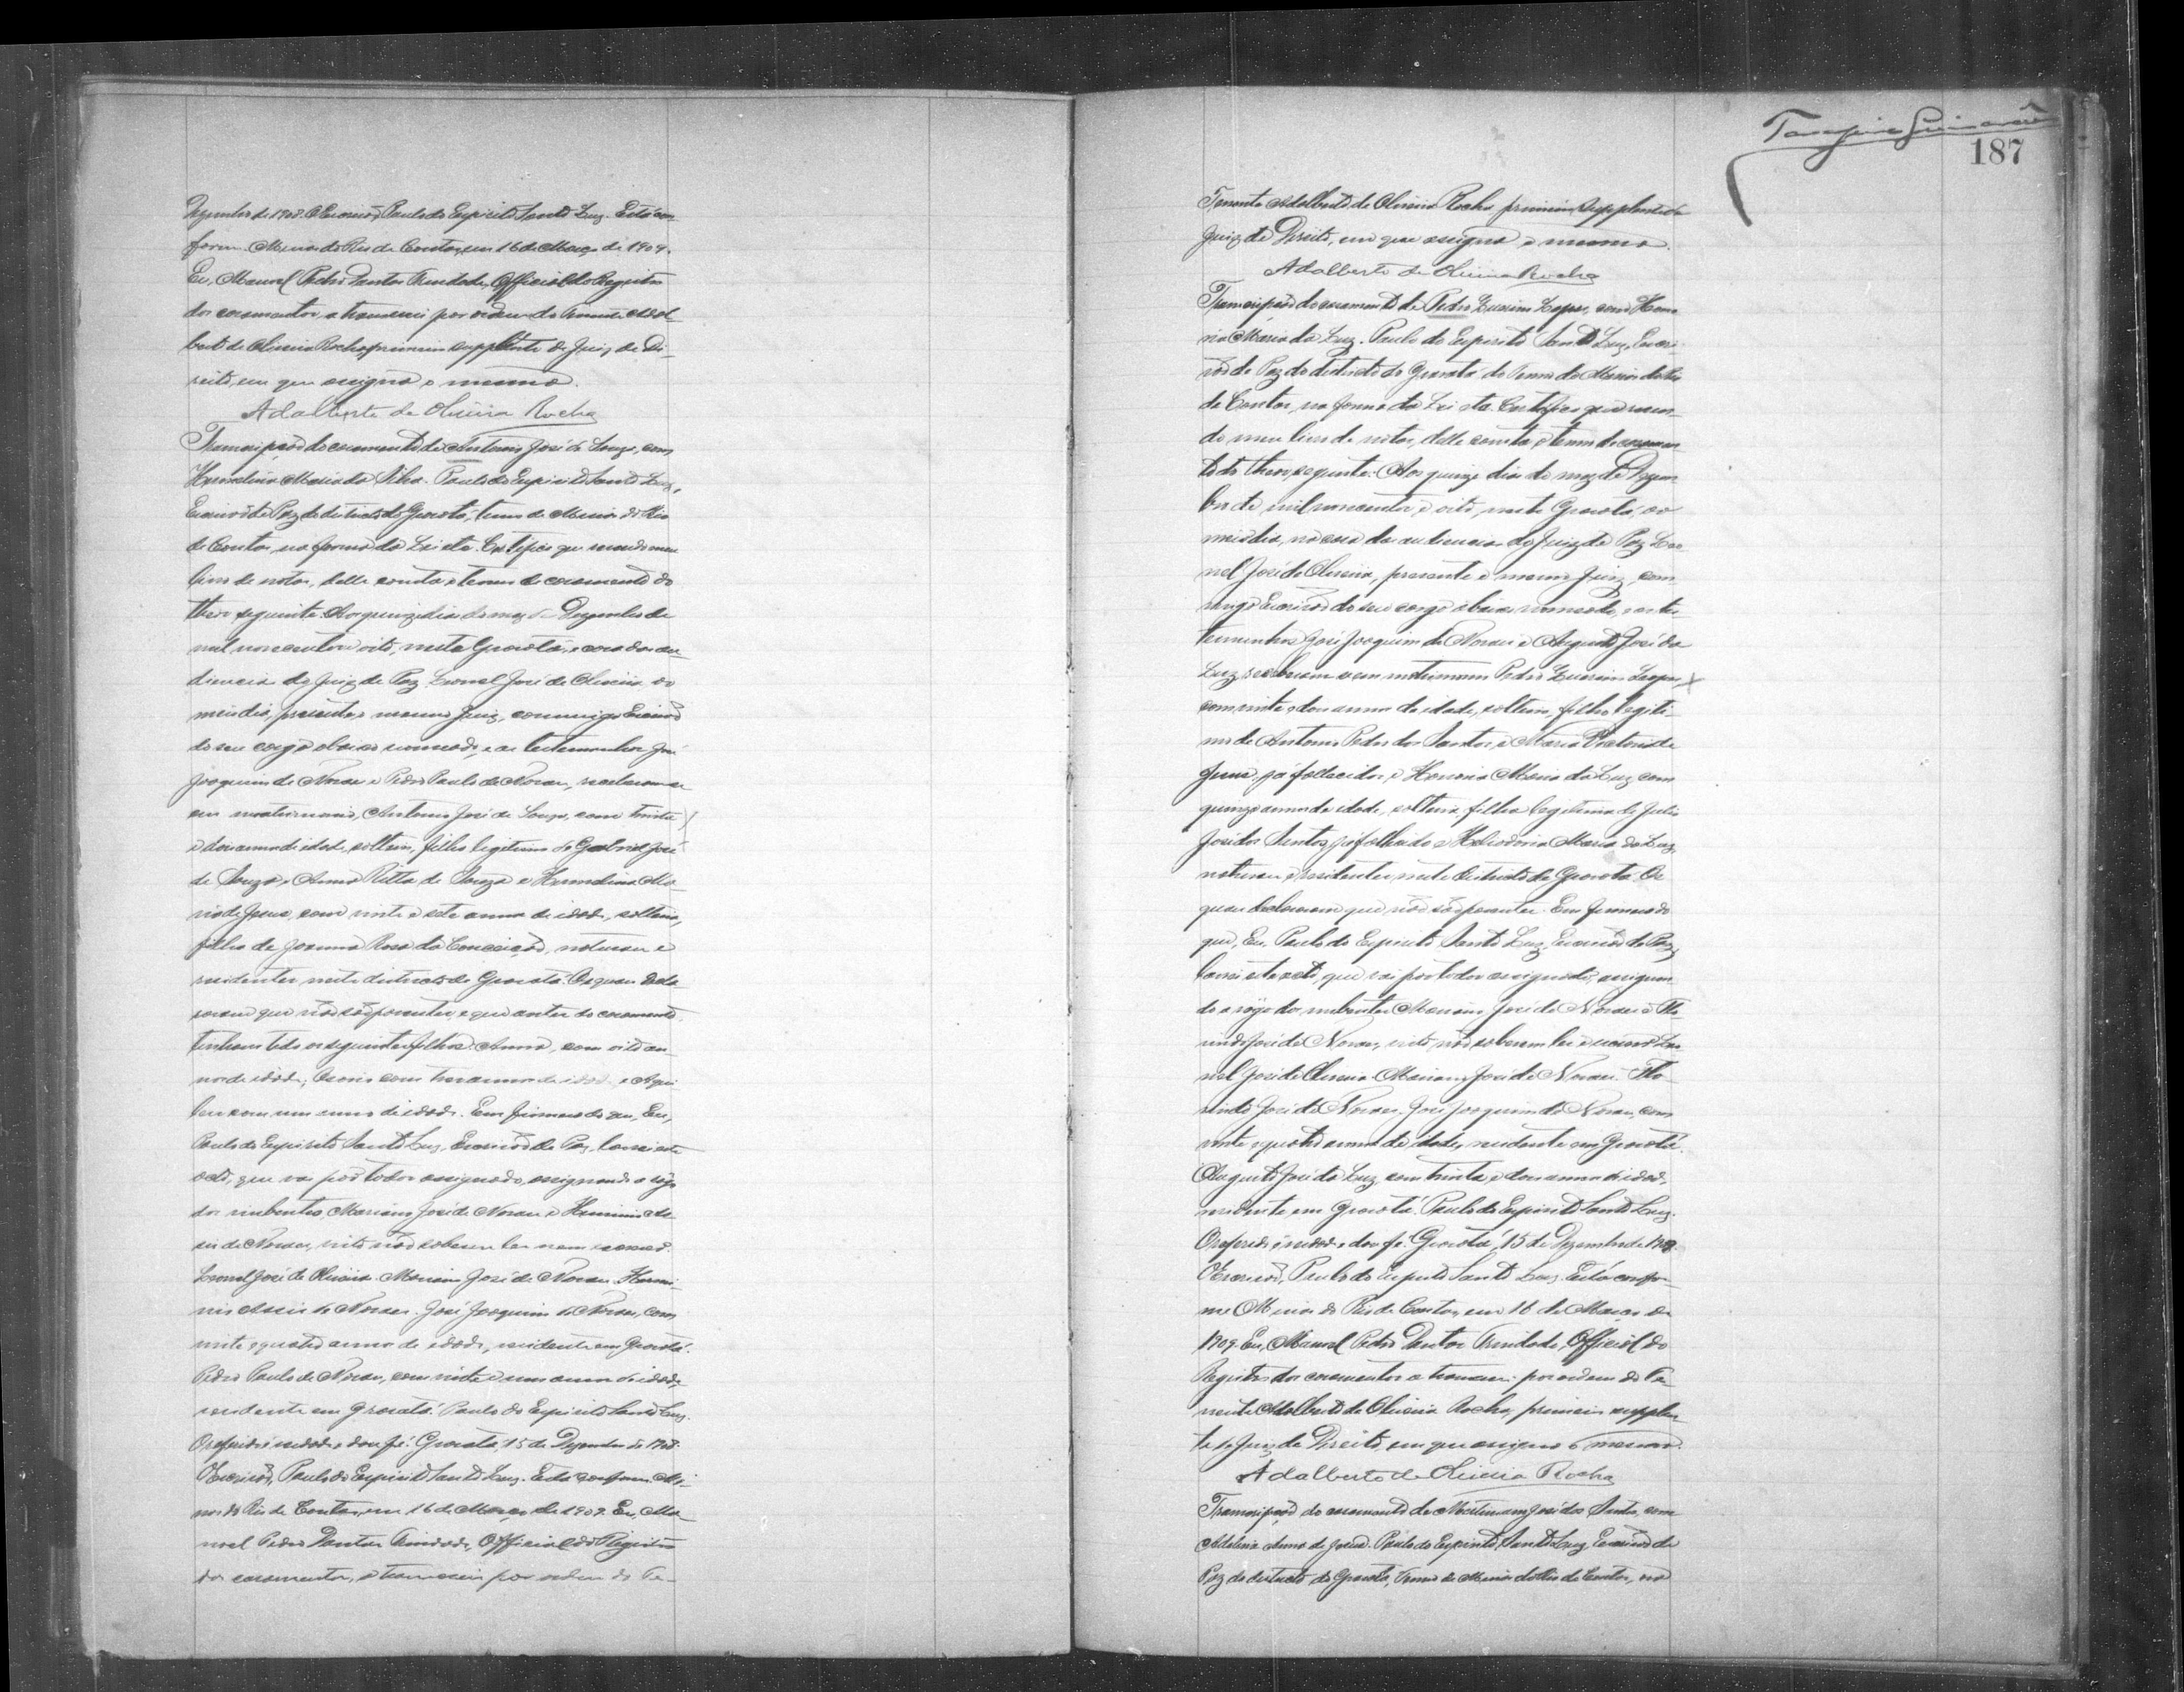 Dezembro de 1908. O Escrivão, Paulo do Espirito Santo Luz. Está con-
forme. Minas do Rio de Contas, em 16 de Março de 1909.
Eu, Manoel Pedro Dantas Trindade, Official do Registro
dos casamentos, a transcrevi por ordem do Tenente Adal-
berto de Oliveira Rocha, primeiro supplente do Juiz de Di-
reito, em que assigna o mesmo.
Adalberto de Oliveira Rocha
Transcripção do casamento de Antonio José de Souza, com
Hermelina Maria da Silva. Paulo do Espirito Santo Luz,
Escrivão de Paz do districto do Gravatá, termo de Minas do Rio
de Contas, na forma da Lei etc. Certifico que revendo meu
livro de notas, delle consta o termo de casamento do
theor seguinte: Aos quinze dias do mez de Dezembro de
mil novecentos e oito, neste Gravatá, e casa das au-
diencias do Juiz de Paz Leonel José de Oliveira ao
meio dia, presente o mesmo Juiz, commigo Escrivão
do seu cargo abaixo nomeado, e as testemunhas José
Joaquim de Novaes e Pedro Paulo de Novaes, receberam-se
em matrimonio, Antonio José de Souza, com trinta
e dous annos de idade, solteiro, filho legitimo de Gabriel José
de Souza e Anna Ritta de Souza e Hermelina Ma-
ria de Jesus, com vinte e sete annos de idade, solteira,
filha de Joanna Rosa da Conceição, naturaes e
residentes neste districto do Gravatá. Os quaes decla-
raram que não são parentes, e que antes do casamento
tinham tido os seguintes filhos: Anna, com oito an-
nos de idade; com tres annos de idade e
com um anno de idade. Em firmeza do que, Eu,
Paulo do Espirito Santo Luz, Escrivão de Paz, lavrei este
acto, que vai por todos assignado, assignando a rogo
dos nubentes Mariano José de Novaes e Herminio As-
sis de Novaes, visto não saberem ler nem escrever.
Leonel José de Oliveira. Mariano José de Novaes. Hermi-
nio Assis de Novaes. José Joaquim de Novaes, com
vinte e quatro annos de idade, residente em Gravatá.
Pedro Paulo de Novaes, com vinte e um annos de idade,
residente em Gravatá. Paulo do Espirito Santo Luz.
O referido é verdade e dou fé. Gravatá, 15 de Dezembro de 1908.
O Escrivão, Paulo do Espirito Santo Luz. Está conforme. Mi-
nas do Rio de Contas, em 16 de Março de 1909. Eu, Ma-
noel Pedro Dantas Trindade, Official do Registro
dos casamentos, a transcrevi por ordem do Te-
187
Tenente Adalberto de Oliveira Rocha primeiro supplente do
Juiz de Direito, em que assigna o mesmo.
Adalberto de Oliveira Rocha
Transcripção do casamento de Pedro Lopes, com Hono-
ria Maria da Luz. Paulo do Espirito Santo Luz, Escri-
vão de Paz do districto do Gravatá do Termo de Minas do Rio
de Contas, na forma da Lei etc. Certifico que reven-
do meu livro de notas, delle consta o termo de casamen-
to do theor seguinte: Aos quinze dias do mez de Dezem-
bro de mil novecentos e oito, neste Gravatá, ao
meio dia, na casa das audiencias do Juiz de Paz Leo-
nel José de Oliveira, presente o mesmo Juiz, com-
migo Escrivão do seu cargo abaixo nomeado, e as tes-
temunhas José Joaquim de Novaes e Augusto José da
Luz, receberam-se em matrimonio Pedro
com vinte e dous annos de idade, solteiro, filho legiti-
mo de Antonio Pedro dos Santos e Maria Victoria de
Jesus, já fallecidos, e Honoria Maria da Luz com
quinze annos de idade, solteira, filha legitima de Julio
José dos Santos, já fallecido e Heliodoria Maria da Luz,
naturaes e residentes neste districto do Gravatá. Os
quaes declararam que não são parentes. Em firmeza do
que, Eu, Paulo do Espirito Santo Luz, Escrivão de Paz,
lavrei este acto, que vai por todos assignado, assignan-
do a rogo dos nubentes Mariano José de Novaes e Flo-
rindo José de Novaes, visto não saberem ler e escrever. Leo-
nel José de Oliveira. Mariano José de Novaes. Flo-
rindo José de Novaes. José Joaquim de Novaes, com
vinte e quatro annos de idade, residente em Gravatá.
Augusto José da Luz, com trinta e dous annos de idade,
residente em Gravatá. Paulo do Espirito Santo Luz.
O referido é verdade e dou fé. Gravatá, 15 de Dezembro de 1908.
O Escrivão, Paulo do Espirito Santo Luz. Está confor-
me. Minas do Rio de Contas, em 16 de Março de
1909. Eu, Manoel Pedro Dantas Trindade, Official do
Registro dos casamentos a transcrevi por ordem do Te-
nente Adalberto de Oliveira Rocha, primeiro supplen-
te do Juiz de Direito, em que assigna o mesmo.
Adalberto de Oliveira Rocha
Transcripção do casamento de José dos Santos, com
Anna de Jesus. Paulo do Espirito Santo Luz, Escrivão de
Paz do districto do Gravatá, Termo de Minas do Rio de Contas, na